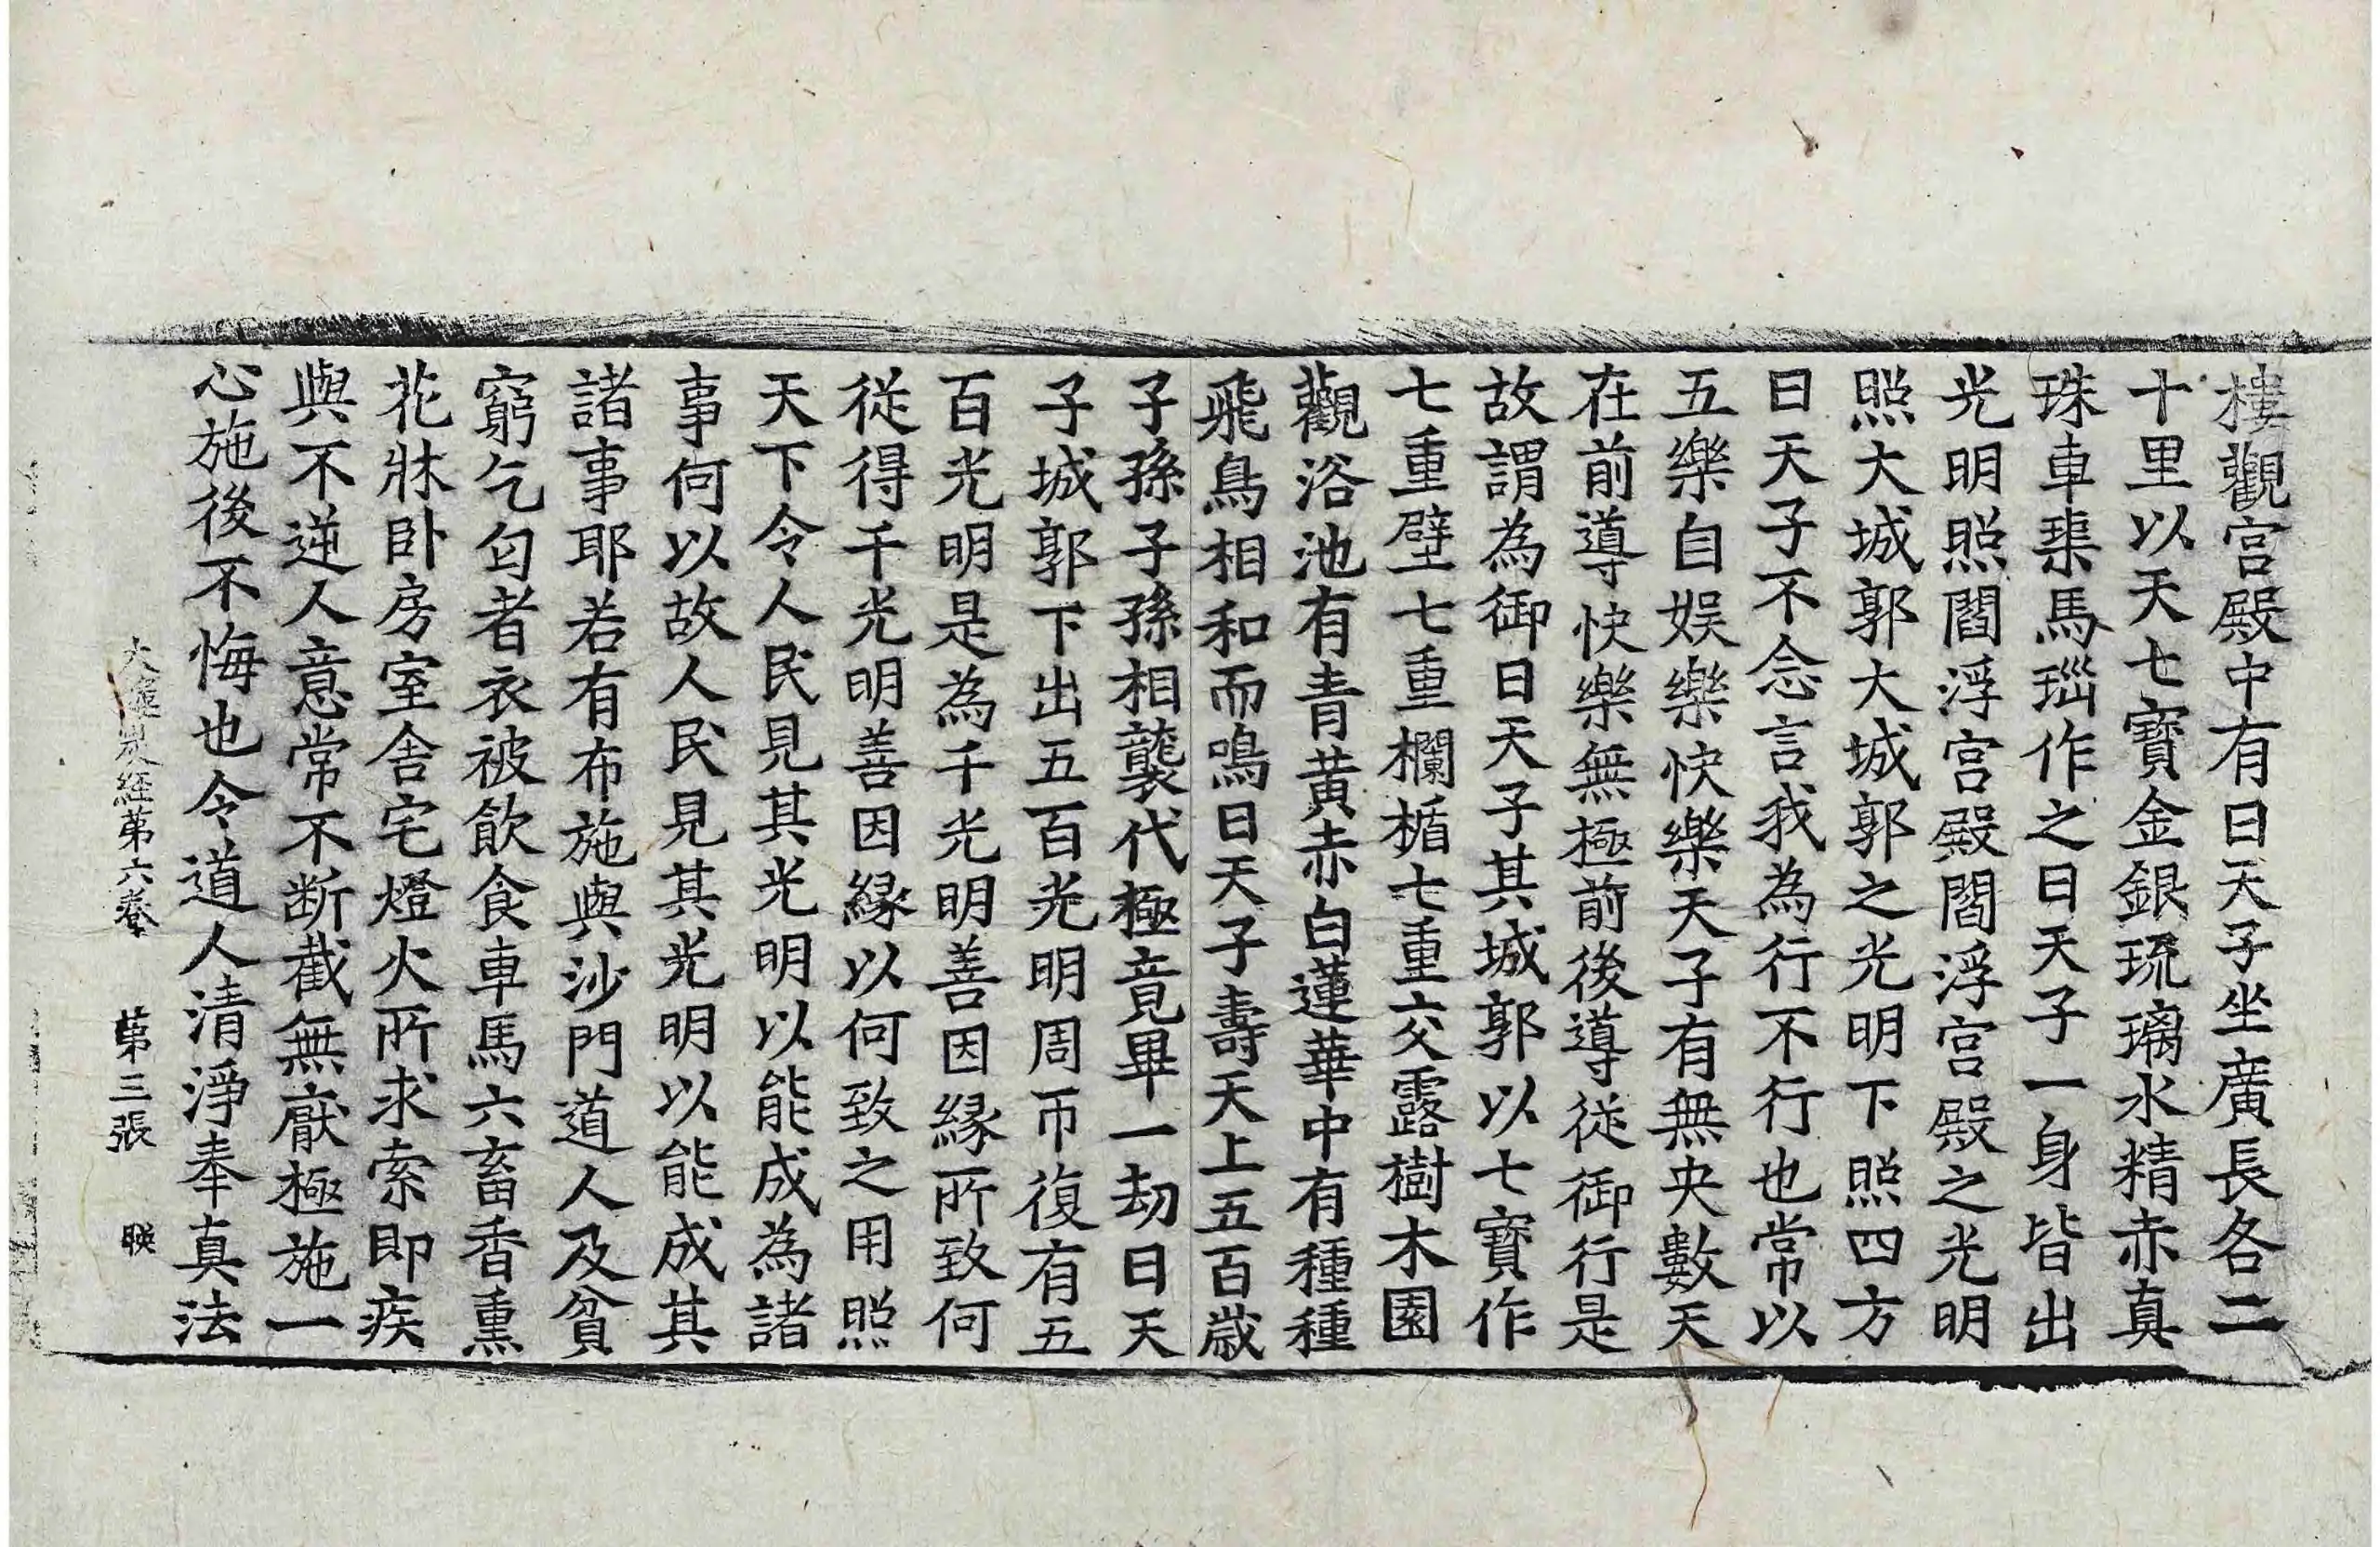 樓觀宮殿中有日天子坐廣長各二
十里以天七寶金銀琉璃水精赤真
珠車𤦲馬瑙作之日天子一身皆出
光明照閻浮宮殿閻浮宮殿之光明
照大城郭大城郭之光明下照四方
日天子不念言我為行不行也常以
五樂自娛樂快樂天子有無央數天
在前導快樂無極前後導從御行是
故謂為御日天子其城郭以七寶作
七重壁七重欄楯七重交露樹木園
觀浴池有青黃赤白蓮華中有種種
飛鳥相和而鳴日天子壽天上五百歲
子孫子孫相襲代極竟畢一劫日天
子城郭下出五百光明周帀復有五
百光明是為千光明善因緣所致何
從得千光明善因緣以何致之用照
天下令人民見其光明以能成為諸
事何以故人民見其光明以能成其
諸事耶若有布施與沙門道人及貧
窮乞匄者衣被飲食車馬六畜香熏
花牀卧房室舍宅燈火所求索即疾
與不逆人意常不断截無厭極施一
心施後不悔也令道人清淨奉真法
大樓炭經第六卷 第三張 映